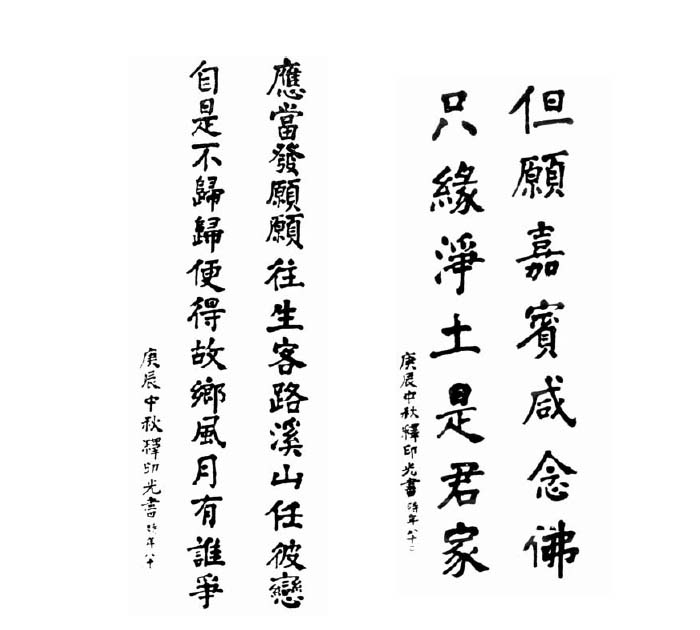 但願嘉賓咸念佛
只緣淨土是君家
庚辰中秋釋印光書時年八十
應當發願願往生客路溪山任彼戀
自是不歸歸便得故鄉風月有誰爭
庚辰中秋釋印光書時年八十